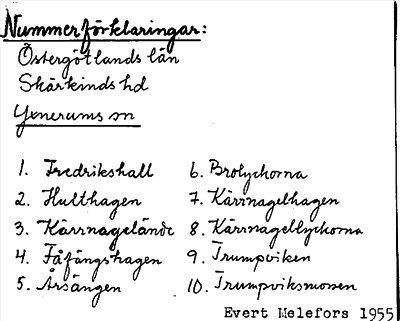 Nummerförklaringar:
Östergötlands län
Skärkinds hd
Yxnerums sn
1. Fredrikshall
2. Hulthagen
3. Kärrnagelände
4. Fåfängshagen
5. Årsängen
6. Brolyckorna
7. Kärrnagelhagen
8. Kärrnagellyckorna
9. Trumpviken
10. Trumpviksmossen
Evert Melefors 1955